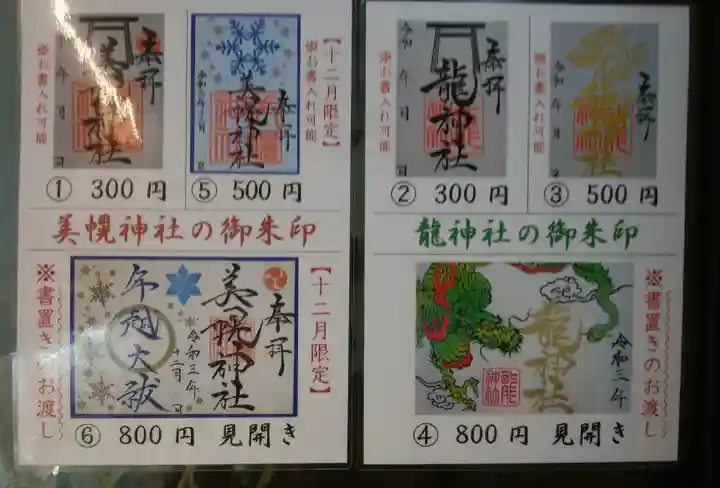 奉拝
美幌神社
令和 年 月 日
※お書入れ可能
① 300円
【十二月限定】
※お書入れ可能
奉拝
美幌神社
⑤ 500円
美幌神社の御朱印
※書置きのお渡し
【十二月限定】
奉拝
美幌神社
令和三年
十二月 日
年越大祓
⑥ 800円 見開き
奉拝
龍神社
令和 年 月 日
※お書入れ可能
② 300円
奉拝
龍神社
令和 年 月 日
※お書入れ可能
③ 500円
龍神社の御朱印
※書置きのお渡し
龍神社
令和三年
④ 800円 見開き